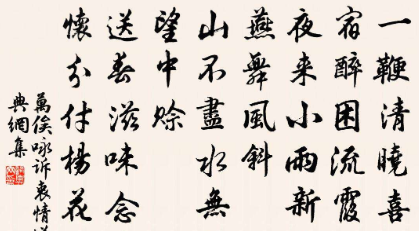 一鞭清曉喜
宿醉困流霞
夜來小雨新
燕舞風斜
山不盡水無
望中賒
送春滋味念
懷分付楊花
萬俟咏訴衷情
典網集